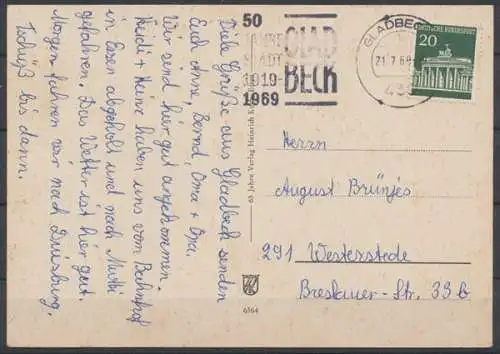 Viele Grüße aus Gladbeck senden
Euch Anne, Bernd, Oma + Opa.
Wir sind hier gut angekommen.
Heidi + Heinz haben uns vom Bahnhof
in Essen abgeholt und nach Mutti
gefahren. Das Wetter ist hier gut.
Morgen fahren wir nach Duisburg.
Tschüß bis dann.
50
JAHRE
STADT
1919-
1969
GLAD
BECK
GLADBECK
21.7.69
DEUTSCHE BUNDESPOST
20
65 Jahre Verlag Heinrich
6164
Herrn
August Brünjes
291 Westerstede
Breslauer-Str. 33 b